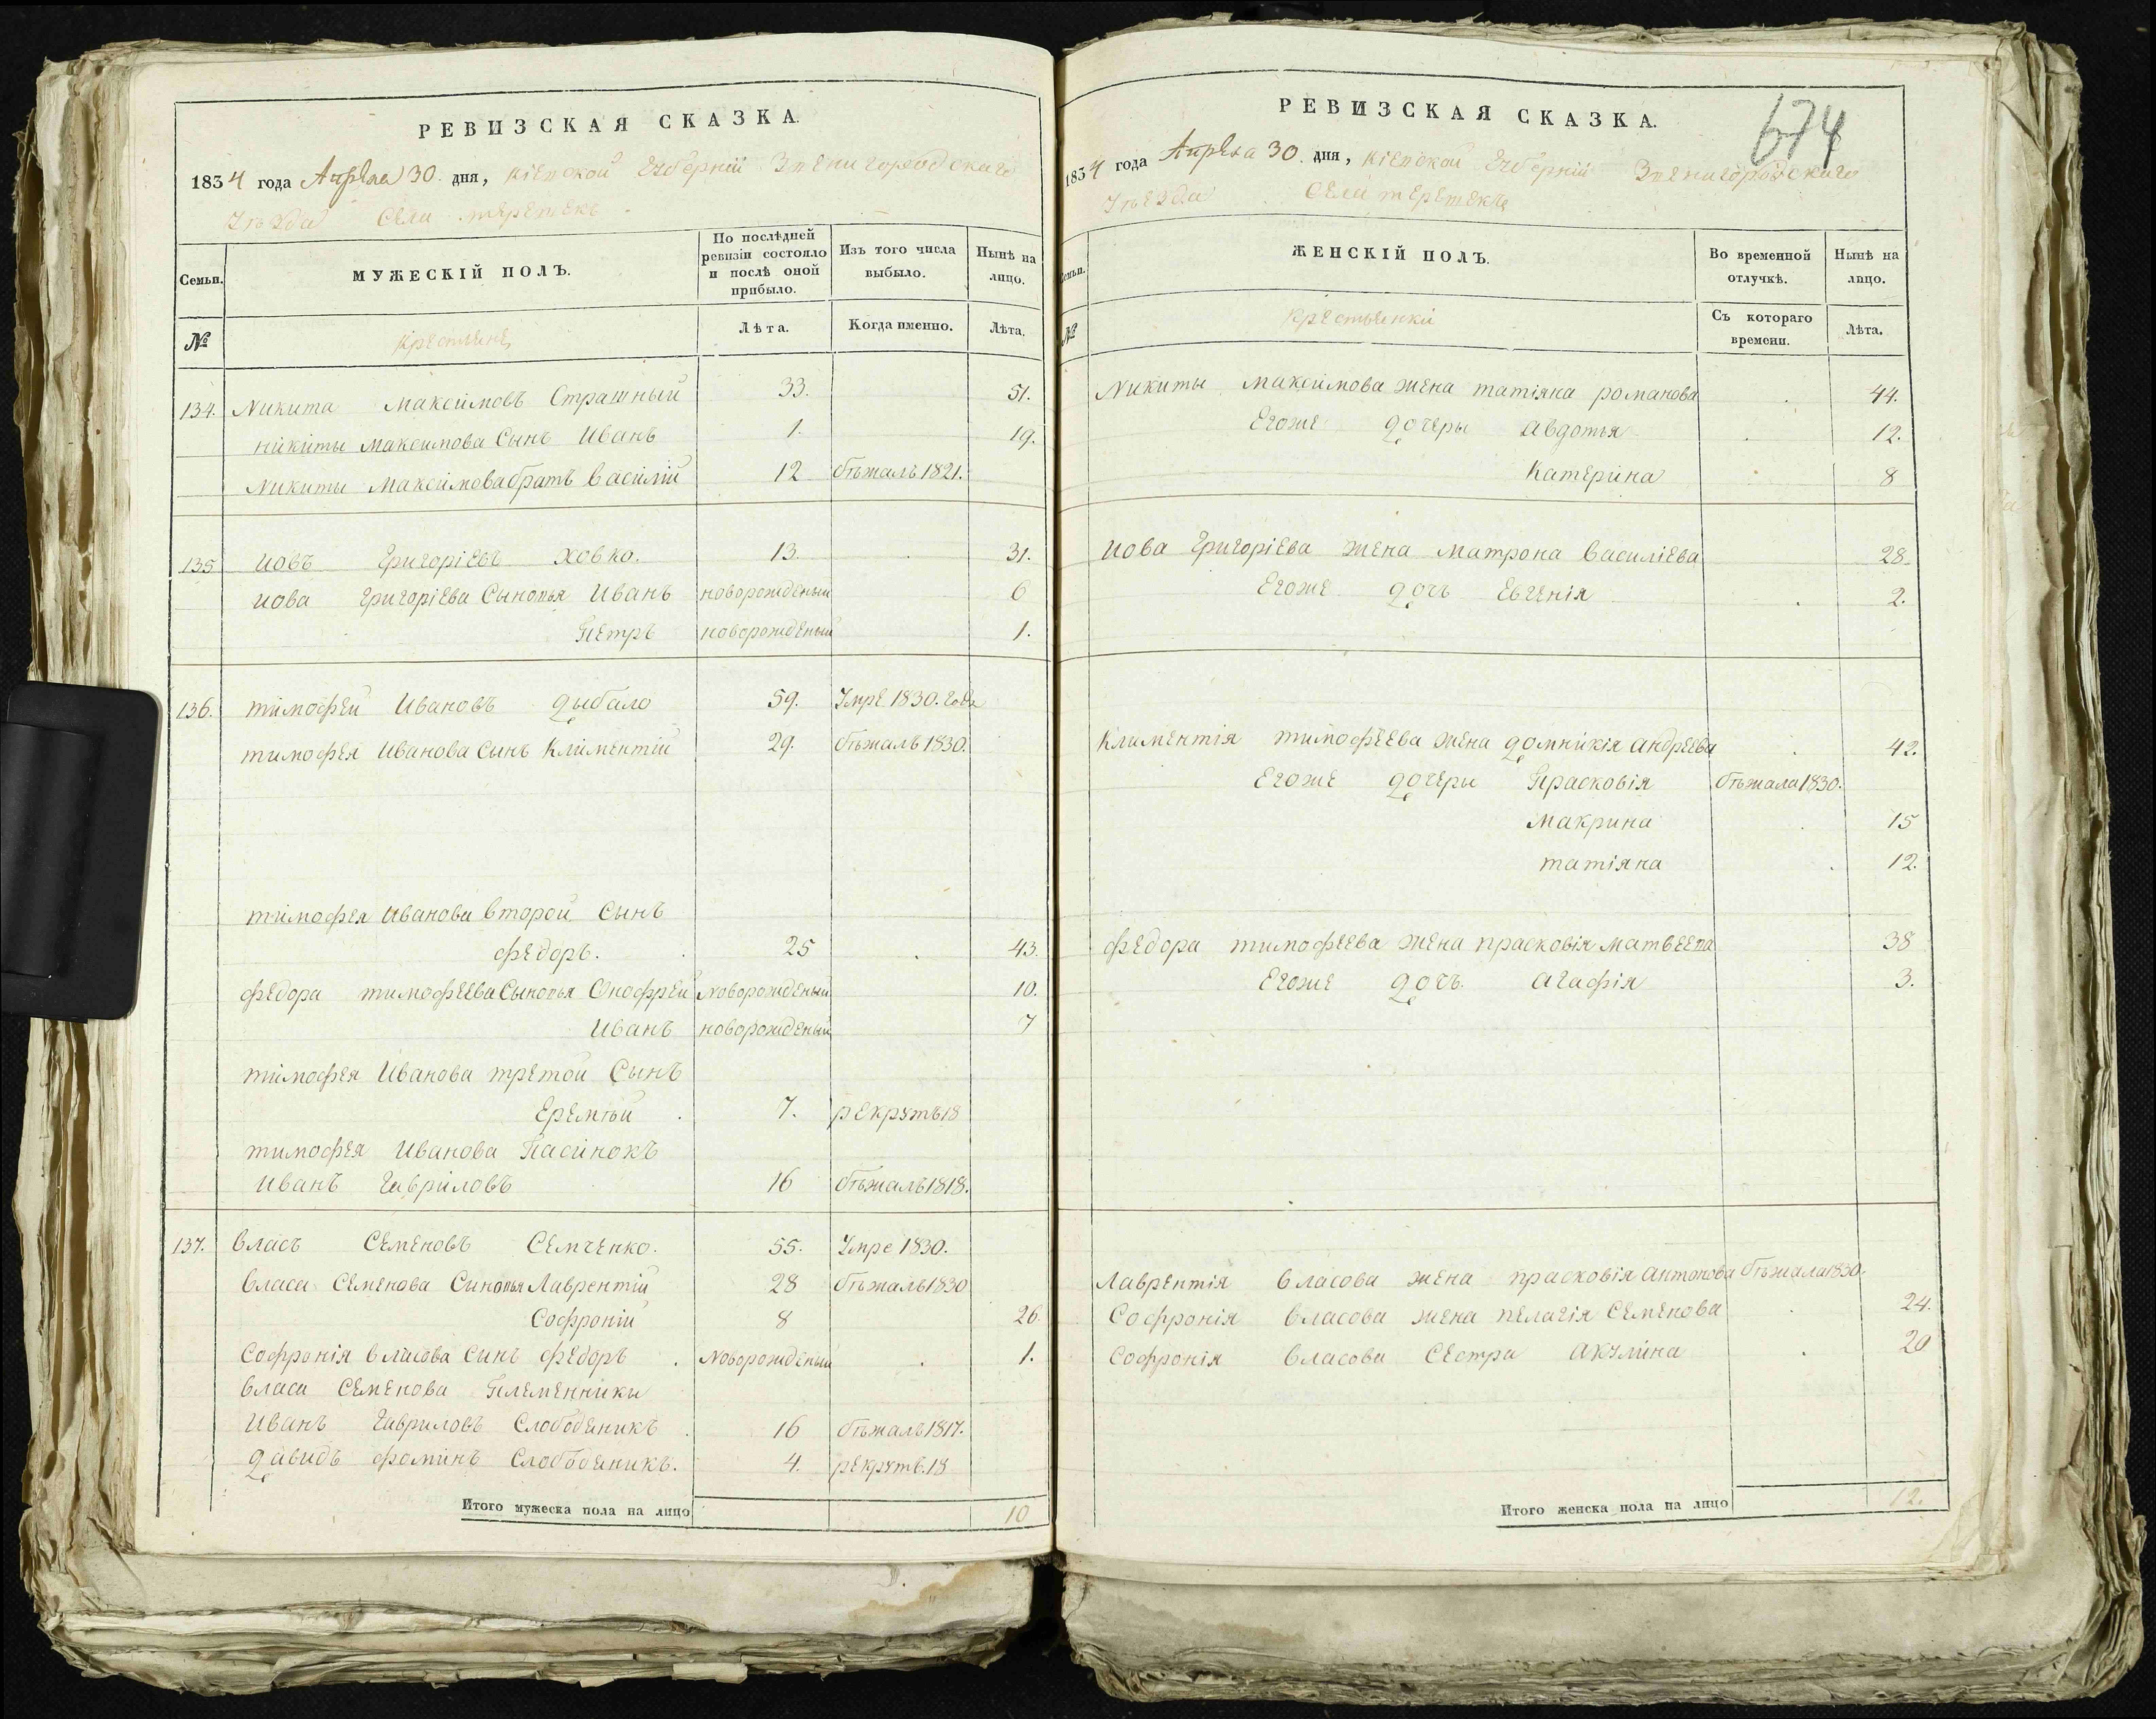 РЕВИЗСКАЯ СКАЗКА.
1834 года Апреля 30. дня, Кіевской Губерніи Звенигородскаго
Уѣзда Села Теретекъ
Семьи.
МУЖЕСКІЙ ПОЛЪ.
По послѣдней ревизіи состояло и послѣ оной прибыло.
Изъ того числа выбыло.
Нынѣ на лицо.
№
Крестьяне
Лѣта.
Когда именно.
Лѣта.
134. Никита Максимовъ Страшный 33. 51.
никиты максимова Сынъ Иванъ 1. 19.
Никиты Максимова братъ василій 12 бѣжалъ 1821.
135 иовъ Григоріевъ Ховко. 13. 31.
иова Григоріева Сыновья Иванъ новорожденый 6
Петръ новорожденый 1.
136. тимофей Ивановъ дыбало 59. Умре 1830. года
тимофея Иванова Сынъ Климентій 29. бѣжалъ 1830.
тимофея Иванова второй Сынъ
федоръ. 25 43.
федора тимофеева Сыновья Онофрей Новорожденый 10.
Иванъ новорожденый 7
тимофея Иванова третой Сынъ
Еремѣй 7. рекрутъ 18
тимофея Иванова Пасинокъ
иванъ Гавриловъ 16 бѣжалъ 1818.
137. власъ Семеновъ Семченко. 55. Умре 1830.
власа Семенова Сыновья Лаврентій 28 бѣжалъ 1830
Софроній 8 26.
Софронія власова синъ федоръ Новорожденый 1.
власа Семенова Племенники
Иванъ Гавриловъ Слободеникъ 16 бѣжалъ 1817.
давидъ фоминъ Слободеникъ. 4. рекрутъ. 18
Итого мужеска пола на лицо 10
674
РЕВИЗСКАЯ СКАЗКА.
1834 года Апреля 30. дня, Кіевской Губерніи Звенигородскаго
Уѣзда Села Теретекъ
Семьи.
ЖЕНСКІЙ ПОЛЪ.
Во временной отлучкѣ.
Нынѣ на лицо.
№
Крестьянки
Съ котораго времени.
Лѣта.
Никиты максимова жена татіяна романова 44.
Егоже дочеры авдотья 12.
Катерина 8
иова Григоріева жена матрона василіева 28.
Егоже дочъ Евгенія 2.
Климентія тимофеева жена домникія андреева 42.
Егоже дочеры Прасковія бѣжала 1830.
Макрина 15
татіяна 12.
федора тимофеева жена прасковія матвеева 38
Егоже дочъ. агафія 3.
Лаврентія власова жена прасковія антонова бѣжала 1830.
Софронія власова жена пелагія Семенова 24.
Софронія власова Сестра акулина 20
Итого женска пола на лицо 12.